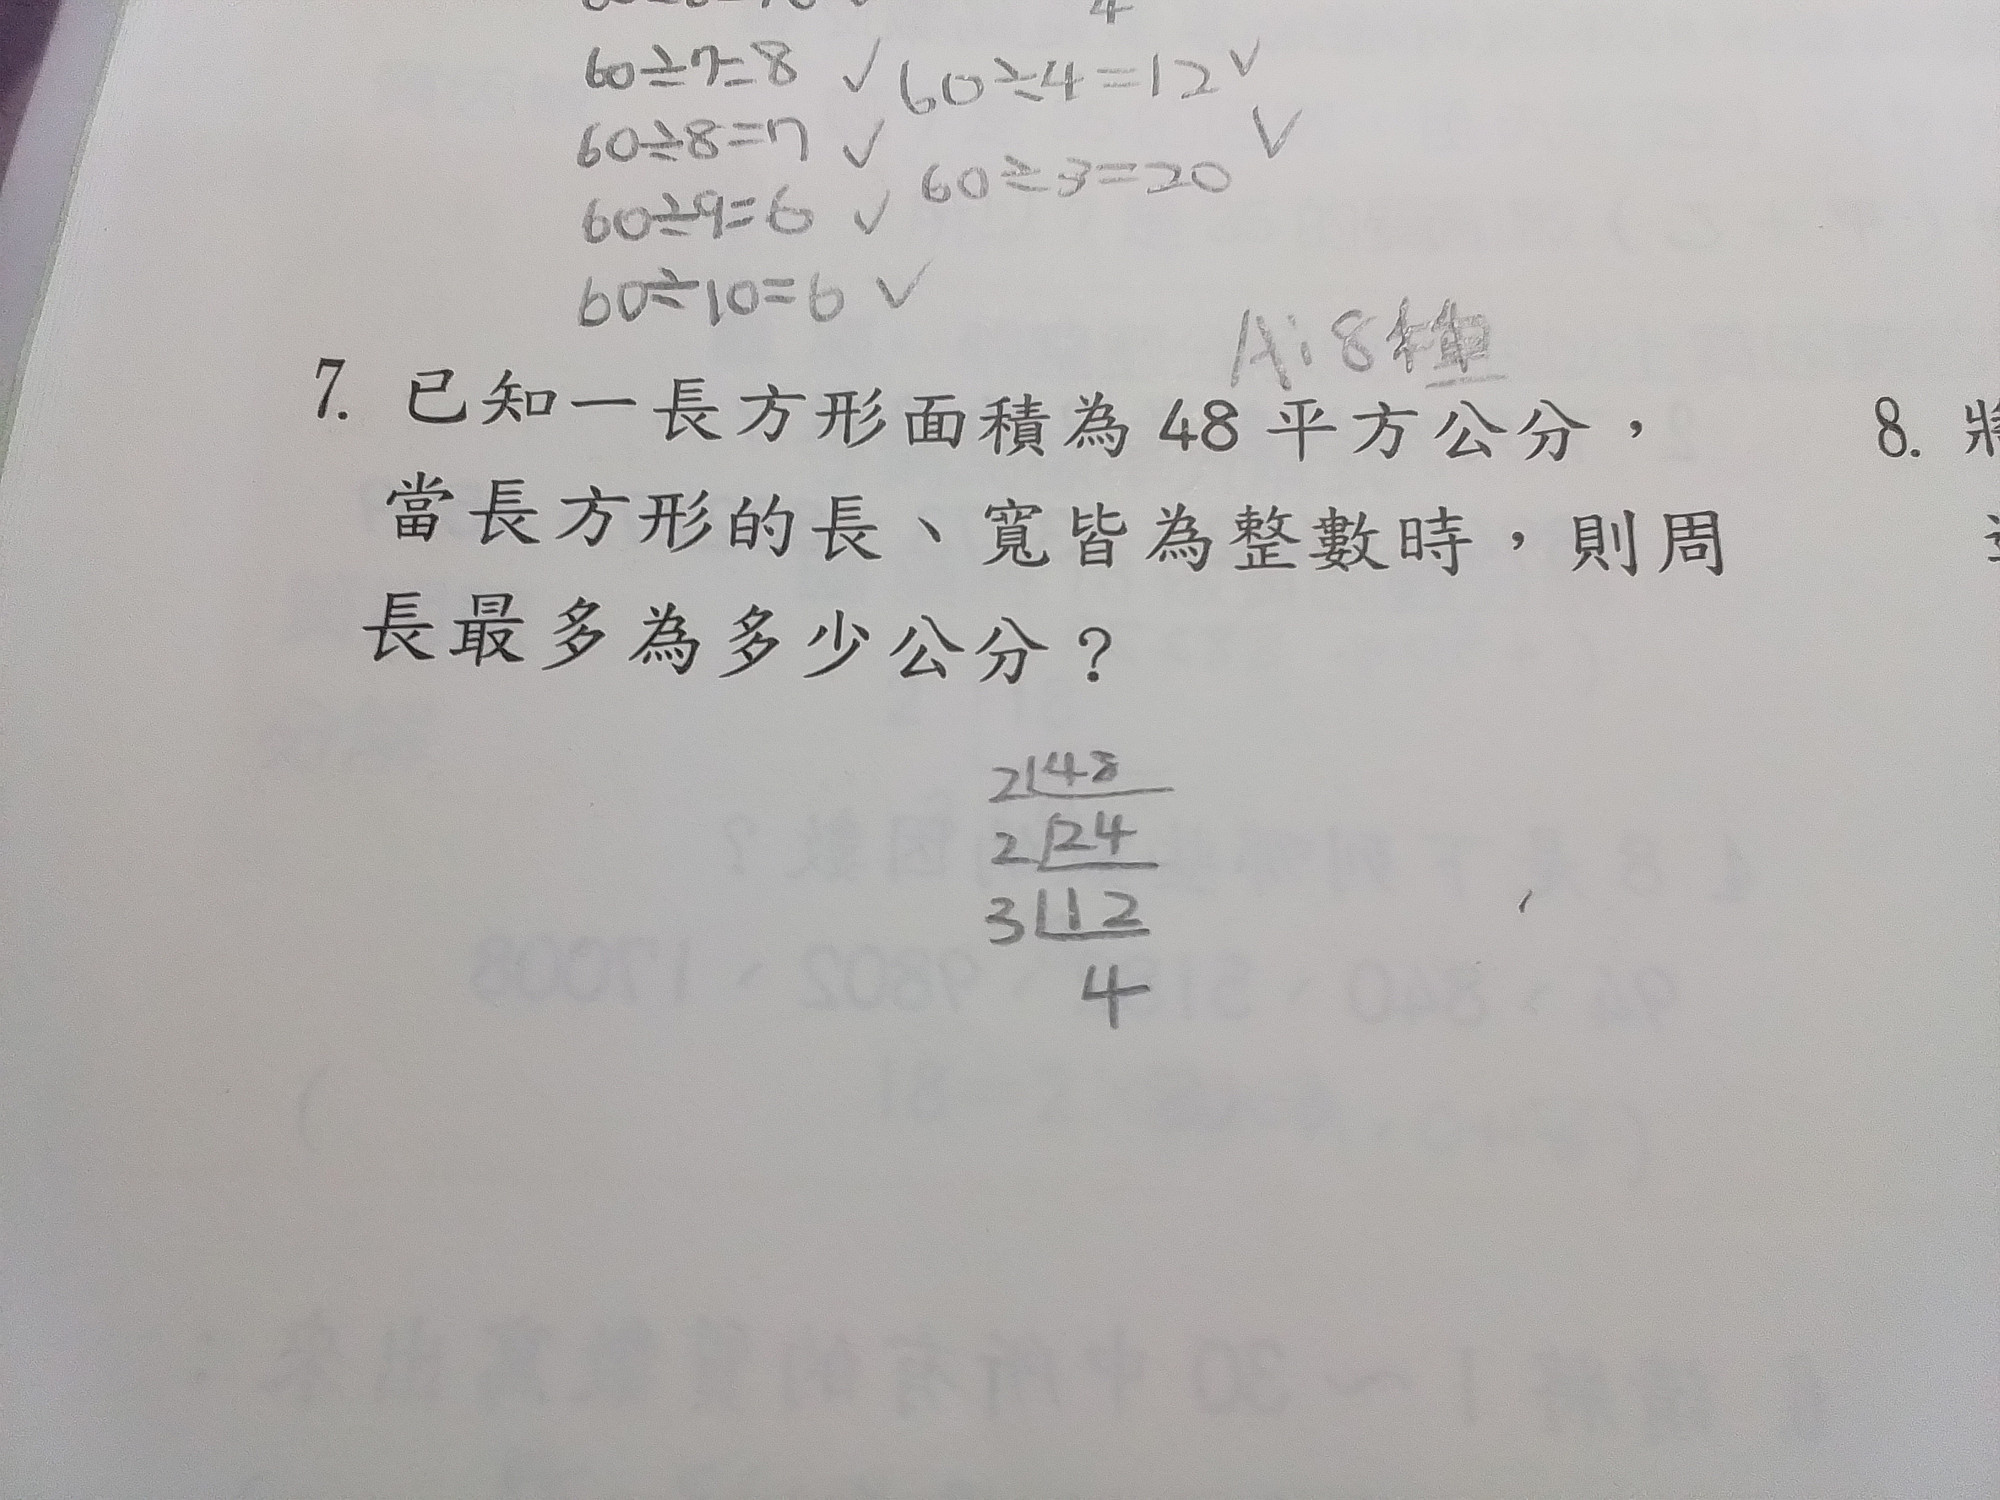 60÷7=8 ✓ 60÷4=12 ✓
60÷8=7 ✓ 60÷3=20 ✓
60÷9=6 ✓
60÷10=6 ✓
A:8種
7. 已知一長方形面積為48平方公分，
當長方形的長、寬皆為整數時，則周
長最多為多少公分？
8.
2 48
2 24
3 12
4